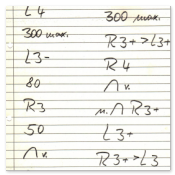 L4
300 max.
L3-
80
R3
50
∩ v.
300 max.
R3+ > L3+
R4
∩ v.
u. ∩ R3+
L3+
R3+ > L3